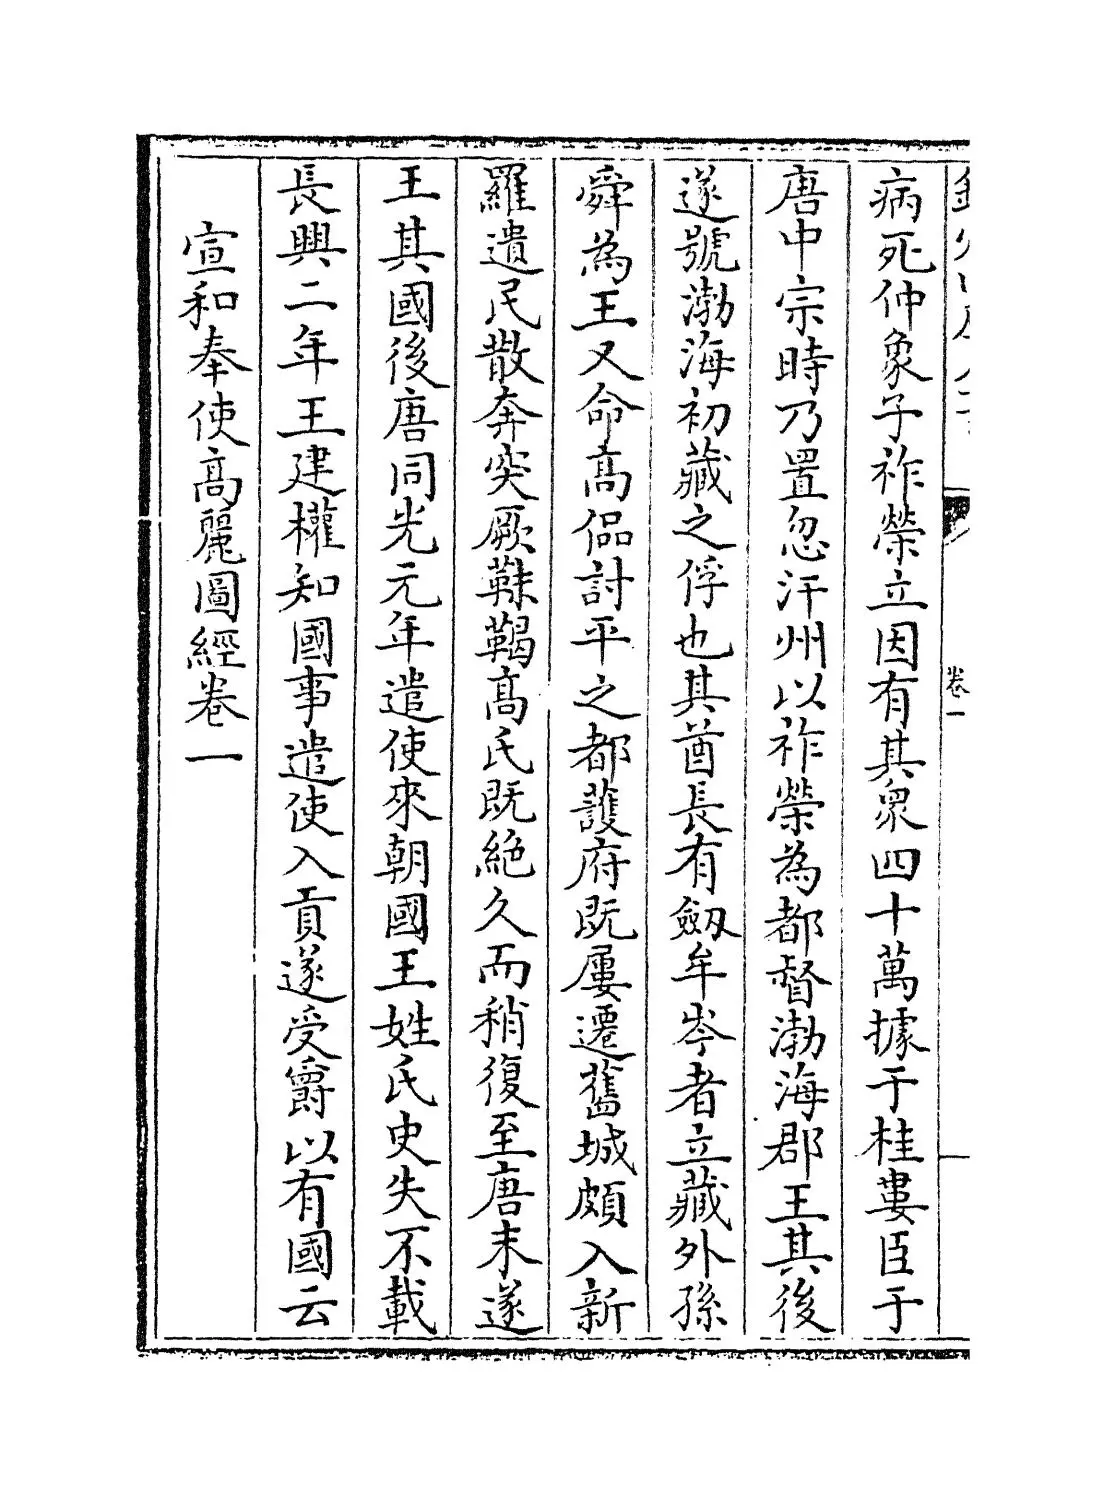 卷一
病死仲象子祚榮立因有其衆四十萬據于桂婁臣于
唐中宗時乃置忽汗州以祚榮為都督渤海郡王其後
遂號渤海初藏之俘也其酋長有劔牟岑者立藏外孫
舜為王又命高偘討平之都護府既屢遷舊城頗入新
羅遺民散奔突厥靺鞨高氏既絶久而稍復至唐末遂
王其國後唐同光元年遣使來朝國王姓氏史失不載
長興二年王建權知國事遣使入貢遂受爵以有國云
宣和奉使高麗圖經卷一